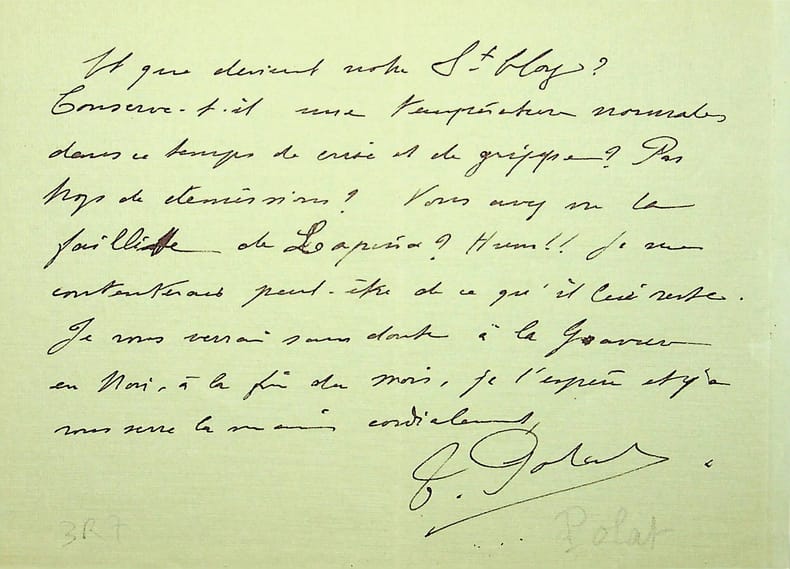 Et que devient notre St Eloy?
Conserve-t-il une température normales
dans ce temps de crise et de grippe? Pas
trop de démissions? Vous avez vu la
faillite de Lapina? Hum!! Je me
contenterais peut-être de ce qu'il lui reste.
Je vous verrai sans doute à la Gravure
en Noir, à la fin du mois, je l'espère et je
vous serre la main cordialement,
Polat
3R7
Polat